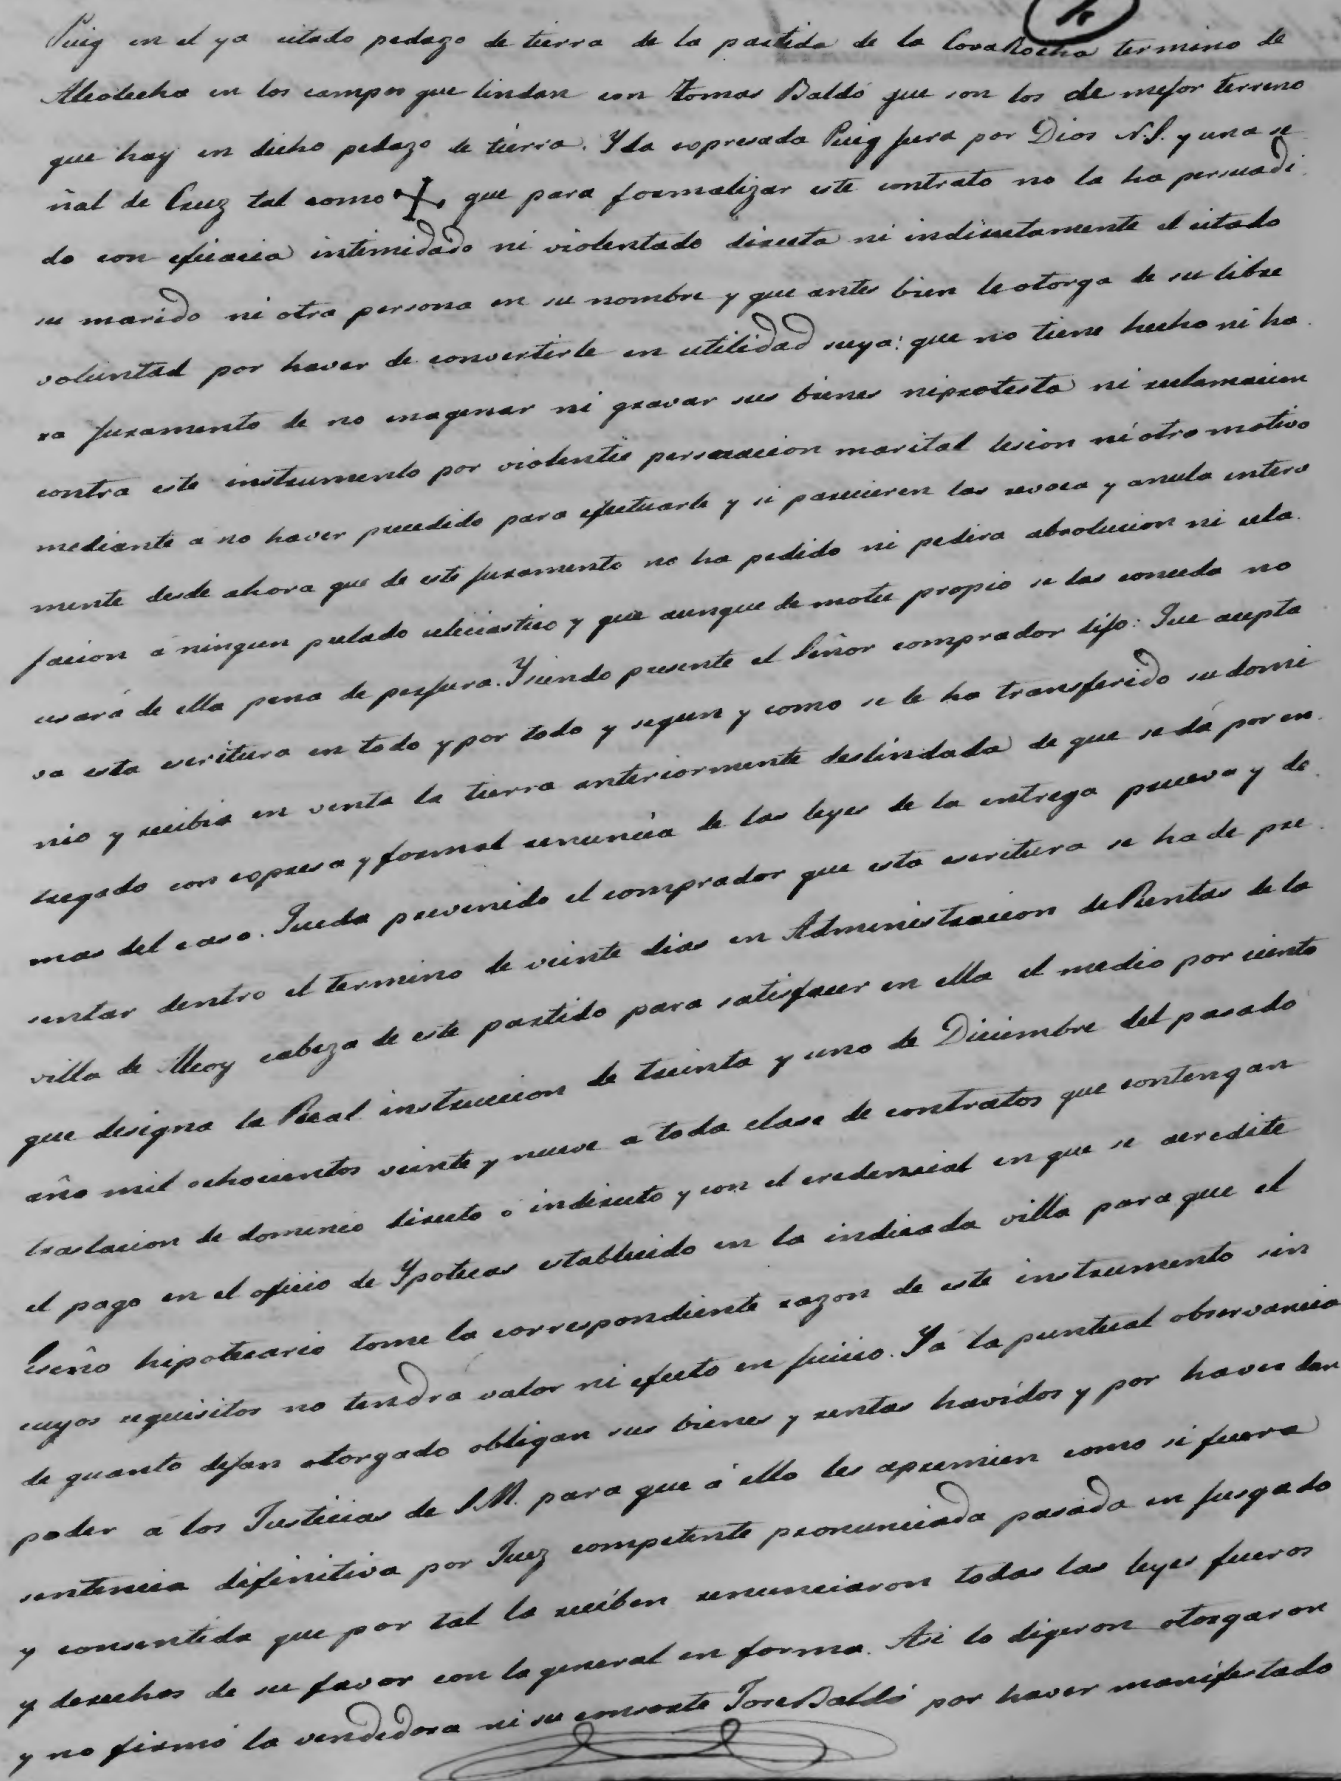 Puig en el ya citado pedazo de tierra de la partida de la Cova Rocha termino de
Alcolecha en los campos que lindan con Tomas Baldó que son los de mejor terreno
que hay en dicho pedazo de tierra. Y la expresada Puig jura por Dios N.S. y una se
ñal de Cruz tal como + que para formalizar este contrato no la ha persuadi
do con eficacia intimidado ni violentado directa ni indirectamente el citado
su marido ni otra persona en su nombre y que antes bien le otorga de su libre
voluntad por haver de convertirle en utilidad suya: que no tiene hecho ni ha
ra juramento de no enagenar ni gravar sus bienes ni protesta ni reclamacion
contra este instrumento por violentia persuacion marital lesion ni otro motivo
mediante a no haver precedido para efectuarle y si parecieren las revoca y anula entera
mente desde ahora que de este juramento no ha pedido ni pedira absolucion ni rela
jacion á ningun prelado eleciastico y que aunque de motu propio se las conceda no
usará de ella pena de perjura. Y siendo presente el Señor comprador dijo: Que acepta
va esta escritura en todo y por todo y segun y como se le ha transferido su domi
nio y recibia en venta la tierra anteriormente deslindada de que se dá por en
tregado con expresa y formal renuncia de las leyes de la entrega prueva y de
mas del caso. Queda prevenido el comprador que esta escritura se ha de pre
sentar dentro el termino de veinte dias en Administracion de Rentas de la
villa de Alcoy cabeza de este partido para satisfacer en ella el medio por ciento
que designa la Real instruccion de treinta y uno de Diciembre del pasado
año mil ochocientos veinte y nueve a toda clase de contratos que contengan
traslacion de dominio directo ó indirecto y con el credencial en que se acredite
el pago en el oficio de Ypotecas establecido en la indicada villa para que el
Esño hipotecario tome la correspondiente razon de este instrumento sin
cuyos requisitos no tendra valor ni efecto en juicio. Y á la puntual observancia
de quanto dejan otorgado obligan sus bienes y rentas havidos y por haver dan
poder a los Justicias de S.M. para que á ello les apremien como si fuera
sentencia difinitiva por Juez competente pronunciada pasada en jusgado
y consentida que por tal la reciben renunciaron todas las leyes fueros
y derechos de su favor con la general en forma. Asi lo digeron otorgaron
y no firmó la vendedora ni su consorte Jose Baldó por haver manifestado